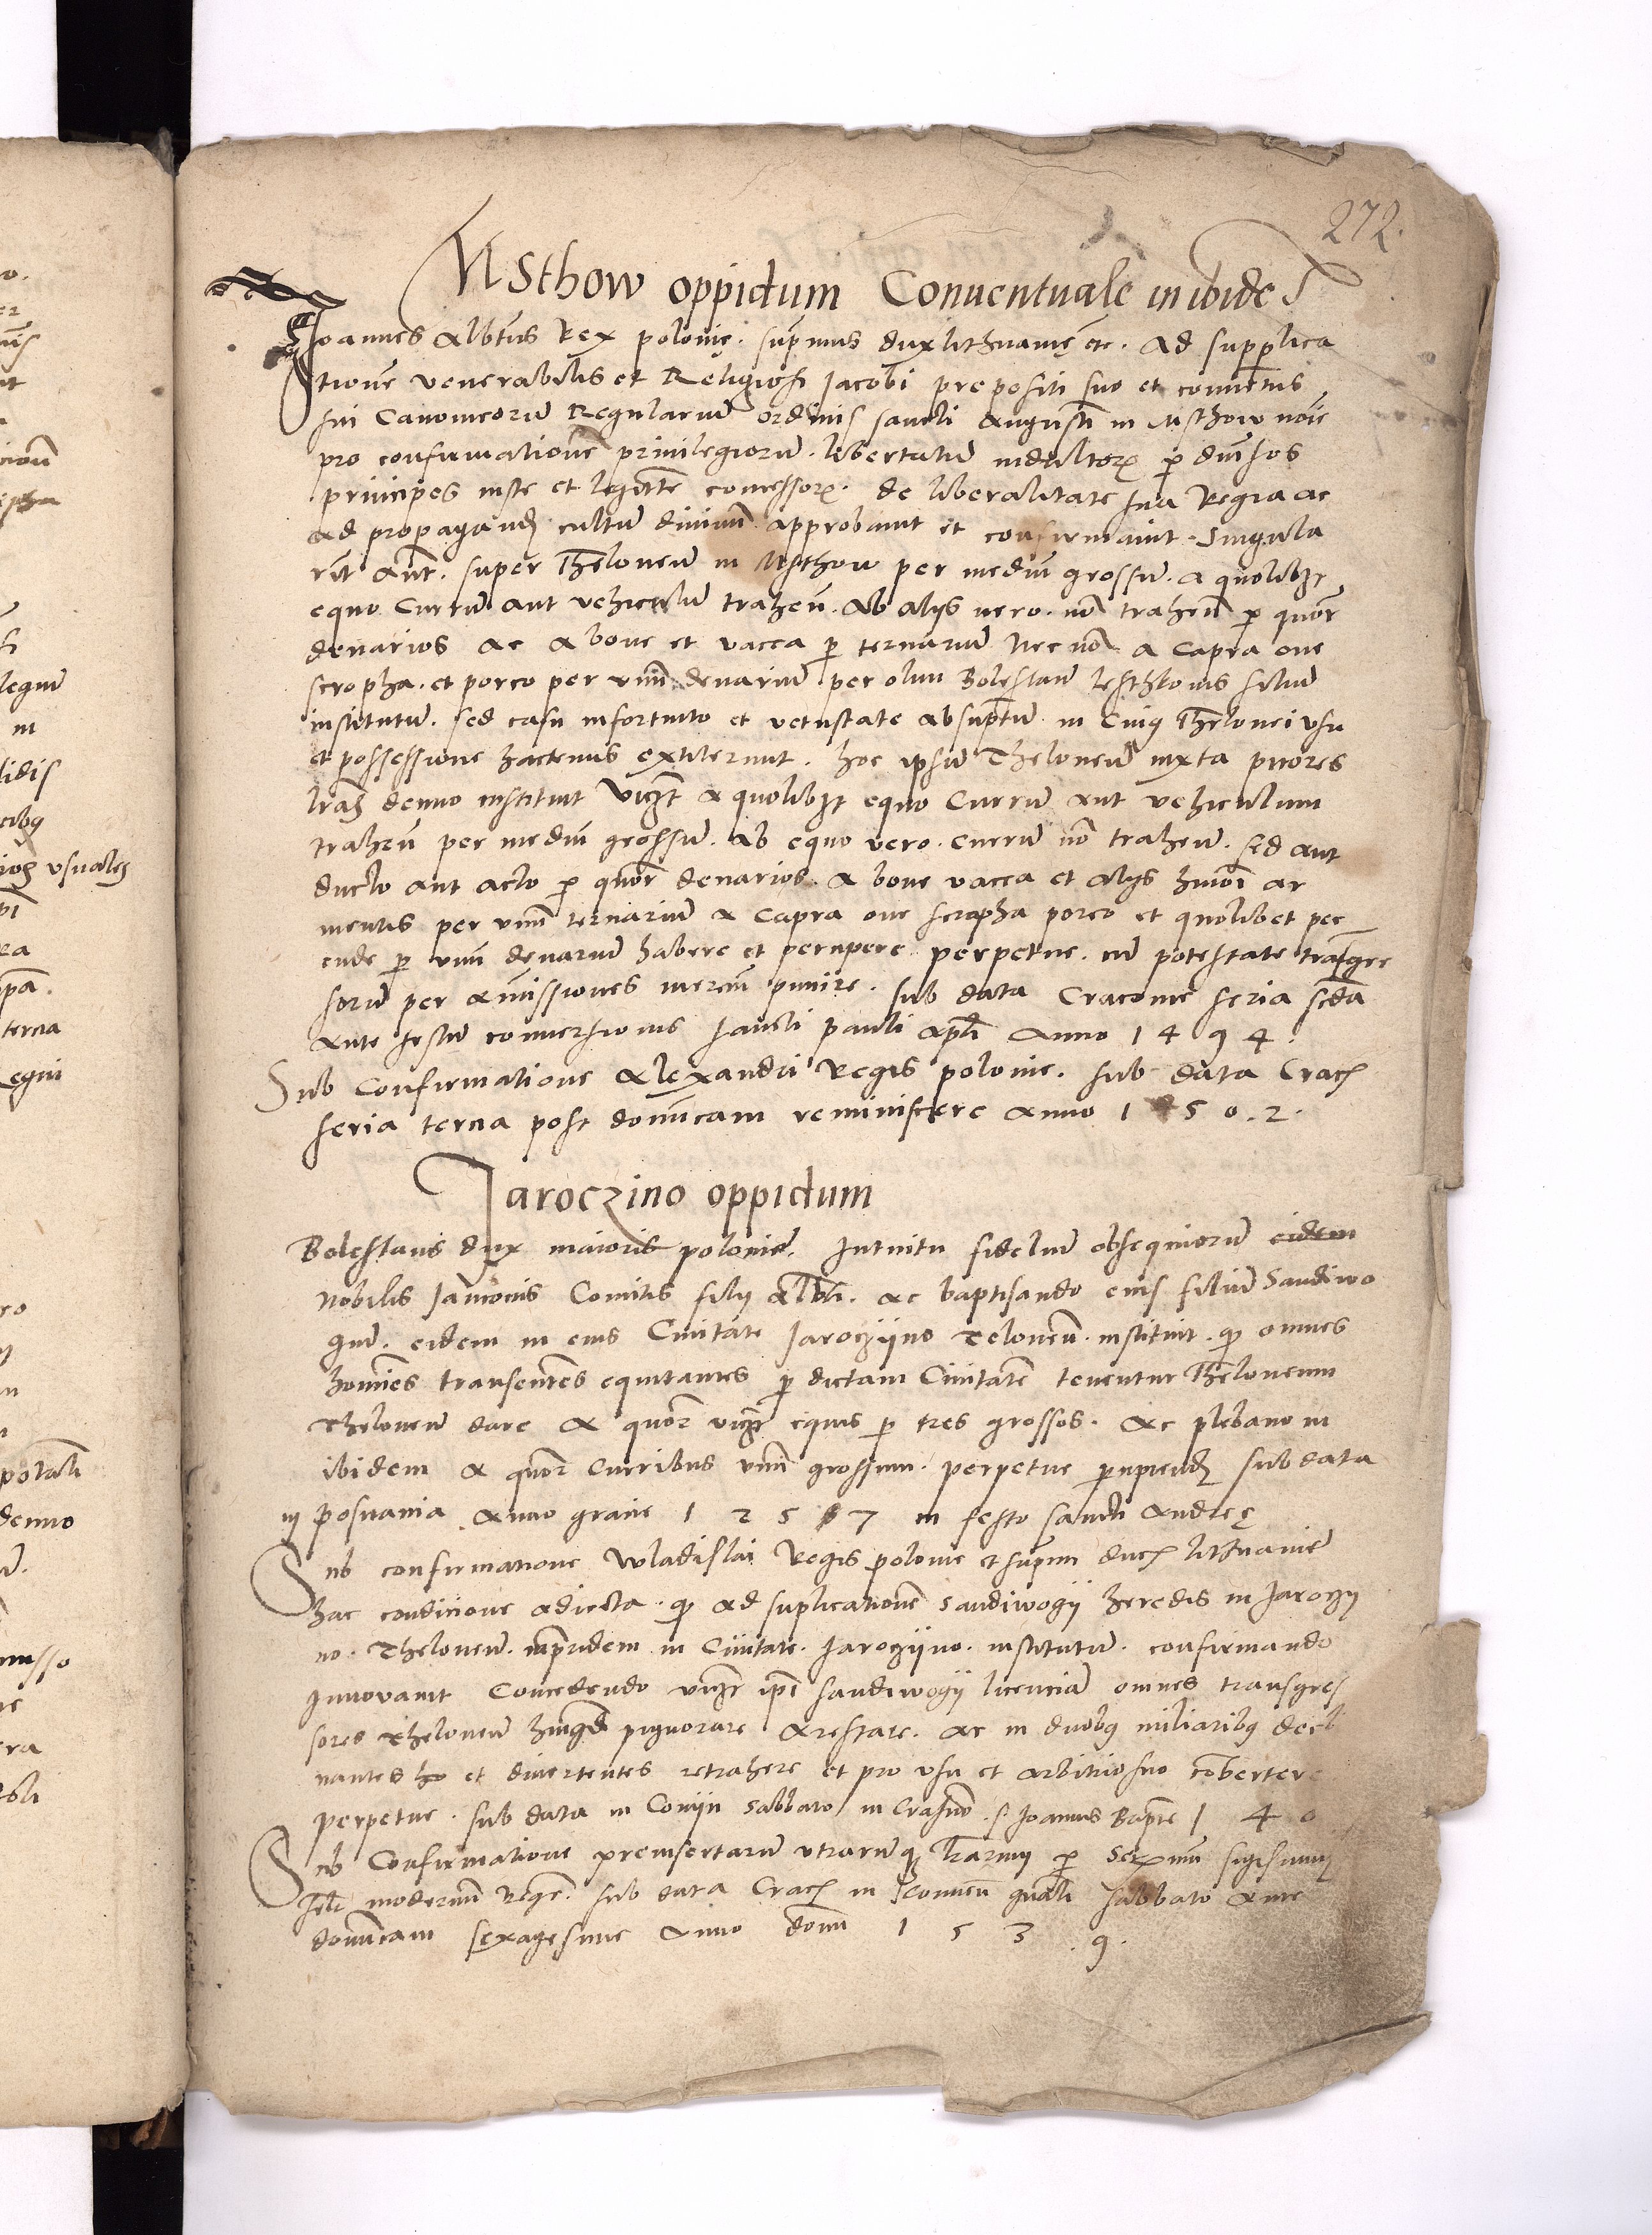 272.
Msthow oppidum Conuentuale inibide
Joannes Albtus Rex polonię. supmus dux lithuanię etc. Ad supplica
tione venerabilis et Religiosi Jacobi prepositi suo et conuentus
sui Canonicorum Regularium ordinis sancti Augusti in Msthow noie
pro confirmatione priuilegiorum. libertatum indultorum p diuersos
principes iuste et legittime concessorum. de liberalitate sua Regia ac
ad propagand cultum diuinum approbauit et confirmauit. Singula
rit aut. super Theloneum in Msthow per medium grossum. a quolibet
equo Currum aut vehiculum trahen. Ab alijs vero. non trahen p quor
denarios ac a boue et vacca p ternarium Nec non a Capra oue
scropha. et porco per vnum denarium per olim Boleslaum lesthkonis filium
institutum. sed casu infortuito et vetustate absumptum in Cuius Thelonei vsu
et possessione hactenus extiterunt. hoc ipsum Theloneum iuxta priores
lras denuo instituit Videlicet a quolibet equo Currum aut vehiculum
trahen per medium grossum. ab equo vero. currum non trahen. sed aut
ducto aut acto p quor denarios. a boue vacca et alijs huiusmodi ar
mentis per vnum ternarium a Capra oue scropha porco et quolibet pec
cude p vnum denarium habere et percipere perpetue. cum potestate transgres
sorum per amissiones mercium punire. sub data Cracouie feria scda
ante festum conuersionis sancti pauli apli Anno 1494.
Sub Confirmatione Alexandri Regis polonie. sub data Crac
feria tercia post dominicam reminiscere Anno 1 5 0. 2.
Jaroczino oppidum
Boleslaus dux maioris polonie. Intuitu fidelium obsequiorum eidem
Nobilis Janconis Comitis filij Alberti. ac baptisando eius filium Sandiwo
gium. eidem in eius Ciuitate Jaroczijno Teloneum. instituit. quod omnes
homines transeuntes equitantes p dictam Ciuitatem tenentur Theloneum
Theloneum dare a quor videlicet equis p tres grossos. ac plebano in
ibidem a quor curribus vnum grossum. perpetue percipiend sub data
in Posnania Anno gratie 1 2 5 7 in festo sancti Andreę
Sub confirmatione Wladislai Regis polonie et supmi ducis lithuanie
hac condicione adiecta. quod ad suplicationem Sandiwogij heredis in Jaroczij
no. Theloneum. inpridem in Ciuitate. Jaroczijno. institutum. confirmando
Innouauit Concedendo videlicet ipi Sandiwogij licenciam omnes transgres
sores Theloneum huiusmodi pignorare arestare. ac in duobus miliaribus decli
nantes et diuertentes retrahere et pro vsu et arbitrio suo conuertere
perpetue. sub data in Conijn Sabbato in Crastino. S Joannis Bapte 1 4 0
Sub Confirmatione preinsertarum vtrarumque lrarum p Sermum sigismundum
feli modernum Regem. sub data Crac in Conuen gnali Sabbato ante
dominicam sexagesime Anno domini 1 5 3. 9.